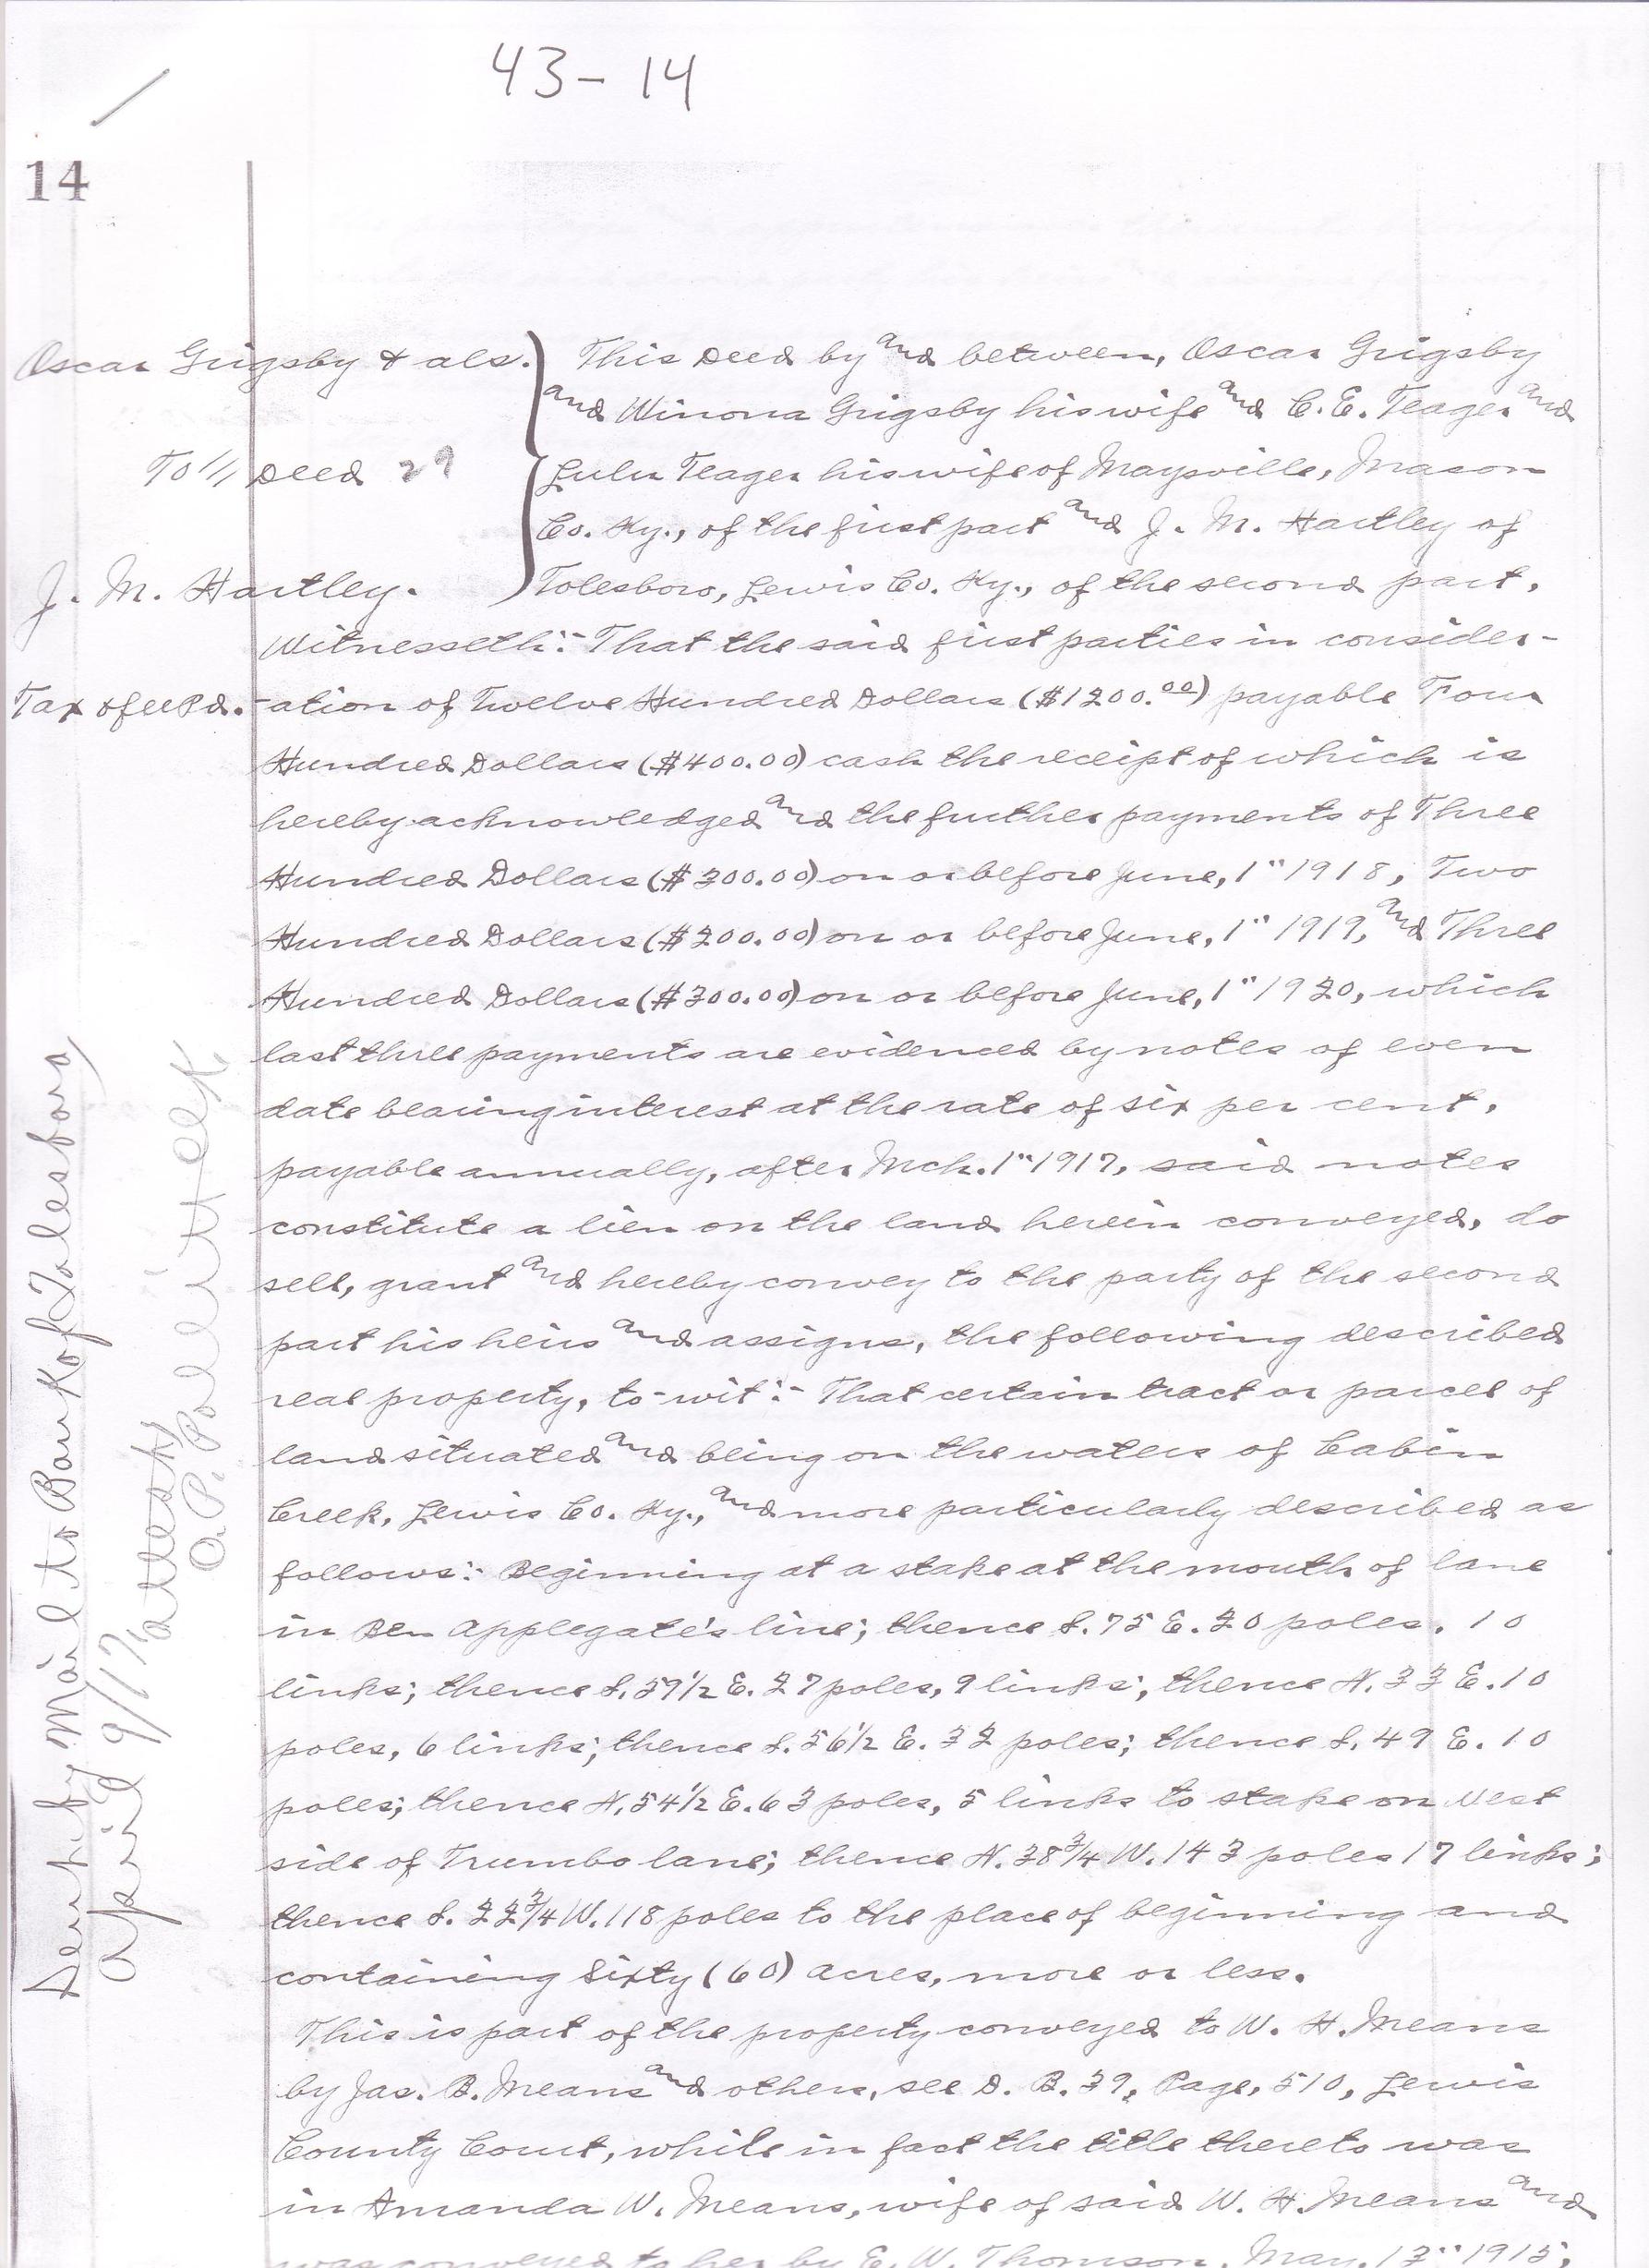 43-14
14
Oscar Grigsby & als.
To // Deed 29
J. M. Hartley.
Tax & fee Pd.
This Deed by and between, Oscar Grigsby
and Winona Grigsby his wife and C. E. Teager and
Lulu Teager his wife of Maysville, Mason
Co. Ky., of the first part and J. M. Hartley of
Tolesboro, Lewis Co. Ky., of the second part,
Witnesseth:- That the said first parties in consider-
-ation of Twelve Hundred Dollars ($1200.00) payable Four
Hundred Dollars ($400.00) cash the receipt of which is
hereby acknowledged and the further payments of Three
Hundred Dollars ($300.00) on or before June, 1" 1918, Two
Hundred Dollars ($200.00) on or before June, 1" 1919, and Three
Hundred Dollars ($300.00) on or before June, 1" 1920, which
last three payments are evidenced by notes of even
date bearing interest at the rate of six per cent,
payable annually, after Mch. 1" 1917, said notes
constitute a lien on the land herein conveyed, do
sell, grant and hereby convey to the party of the second
part his heirs and assigns, the following described
real property, to-wit:- That certain tract or parcel of
land situated and being on the waters of Cabin
Creek, Lewis Co. Ky., and more particularly described as
follows:- Beginning at a stake at the mouth of lane
in Ben Applegate's line; thence S. 75 E. 20 poles, 10
links; thence S. 59 1/2 E. 27 poles, 9 links; thence N. 33 E. 10
poles, 6 links; thence S. 56 1/2 E. 32 poles; thence S. 49 E. 10
poles; thence N. 54 1/2 E. 63 poles, 5 links to stake on West
side of Trumbo lane; thence N. 38 3/4 W. 143 poles 17 links;
thence S. 22 3/4 W. 118 poles to the place of beginning and
containing Sixty (60) acres, more or less.
This is part of the property conveyed to W. H. Means
by Jas. B. Means and others, see D. B. 39, Page, 510, Lewis
County Court, while in fact the title thereto was
in Amanda W. Means, wife of said W. H. Means and
was conveyed to her by E. W. Thomson, May, 13" 1915,
Sent by Mail to Bank of Tolesboro,
April 9/17, attest
O. P. Pollitt clk,